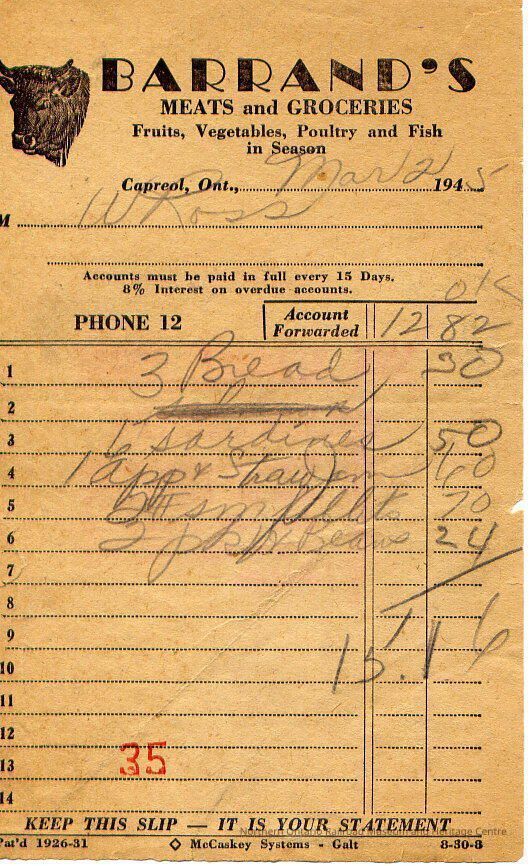 BARRAND'S
MEATS and GROCERIES
Fruits, Vegetables, Poultry and Fish
in Season
Capreol, Ont., Mar 2 1945
M W Ross
Accounts must be paid in full every 15 Days.
8% Interest on overdue accounts.
OK
PHONE 12 Account Forwarded 12 82
1 3 Bread 30
2
3 6 sardines 50
4 1 app & Straw 60
5 70
6 2 Beans 24
7
8
9 15.16
10
11
12
13 35
14
KEEP THIS SLIP — IT IS YOUR STATEMENT
Northern Ontario Railroad Museum and Heritage Centre
Pat'd 1926-31 ◇ McCaskey Systems - Galt 8-30-8